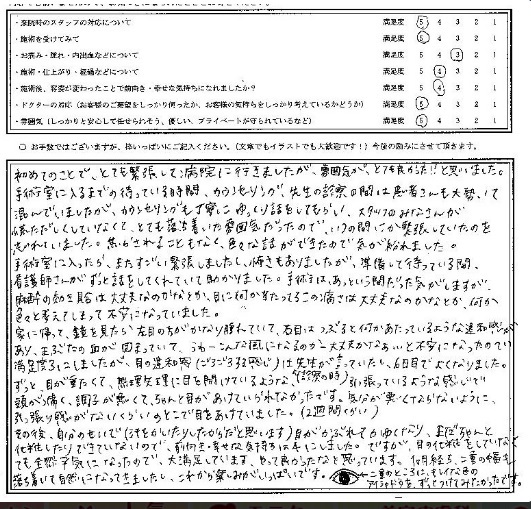 ・来院時のスタッフの対応について 満足度 5 4 3 2 1
・施術を受けてみて 満足度 5 4 3 2 1
・お痛み・腫れ・内出血などについて 満足度 5 4 3 2 1
・施術・仕上がり・経過などについて 満足度 5 4 3 2 1
・施術後、容姿が変わったことで前向き・幸せな気持ちになれましたか? 満足度 5 4 3 2 1
・ドクターの対応(お客様のご要望をしっかり伺ったか、お客様の気持ちをしっかり考えているかどうか) 満足度 5 4 3 2 1
・雰囲気(しっかりと安心して任せられそう、優しい、プライベートが守られているなど) 満足度 5 4 3 2 1
○ お手数ではございますが、枠いっぱいにご記入ください。(文章でもイラストでも大歓迎です!)今後の励みにさせて頂きます。
初めてのことで、とても緊張して病院に行きましたが、雰囲気が、とても良かった!!と思いました。
手術室に入るまでの待っている時間、カウンセリング、先生の診察の間は患者さんも大勢いて
混んでいましたが、カウンセリングも丁寧にゆっくり話をしてもらい、スタッフのみなさんが
慌ただしくしていなくて、とても落ち着いた雰囲気だったので、いつの間にか緊張していたのを
忘れていました。焦らされることもなく、色々な話ができたので気が紛れました。
手術室に入ったら、またすごい緊張しましたし、怖さもありましたが、準備して待っている間、
看護師さんがずっと話をしてくれていて助かりました。手術は、あっという間だった気がしますが、
麻酔の効き具合は大丈夫なのかなとか、目に何か当たってるこの痛さは大丈夫なのかなとか、何か
色々と考えてしまって不安になっていました。
家に帰って、鏡を見たら左目のちがかなり腫れていて、右目は
あり、まぶたの血が固まっていて、うわーこんな風になるのか、大丈夫かなぁ、と不安になったので
満足度3にしましたが、目の違和感(ごろごろする感じ)は先生が言っていた、6日目でよくなりました。
ずっと、目が重たくて、無理矢理に目を開けているような、(診察の時)引っ張っているような感じで
頭が痛く、調子が悪くて、ちゃんと目があけていられなかったです。気分が悪くてならないように、
引っ張り感がないくらいのとこで目をあけていました。(2週間ぐらい)
その後、自分のせいで(汗をかいたりしたからだと思います)目がかぶれてかゆくなり、まだちゃんと
化粧したりできていないので、前向き・幸せな気持ちは4にしました。ですが、目の化粧をしていなく
ても全然平気になったので、大満足しています。やって良かったなと思っています。1ヶ月経ち、二重の幅も
落ち着いて自然になってきましたし、これから楽しみがいっぱいです。
二重のところに、もしイ色の